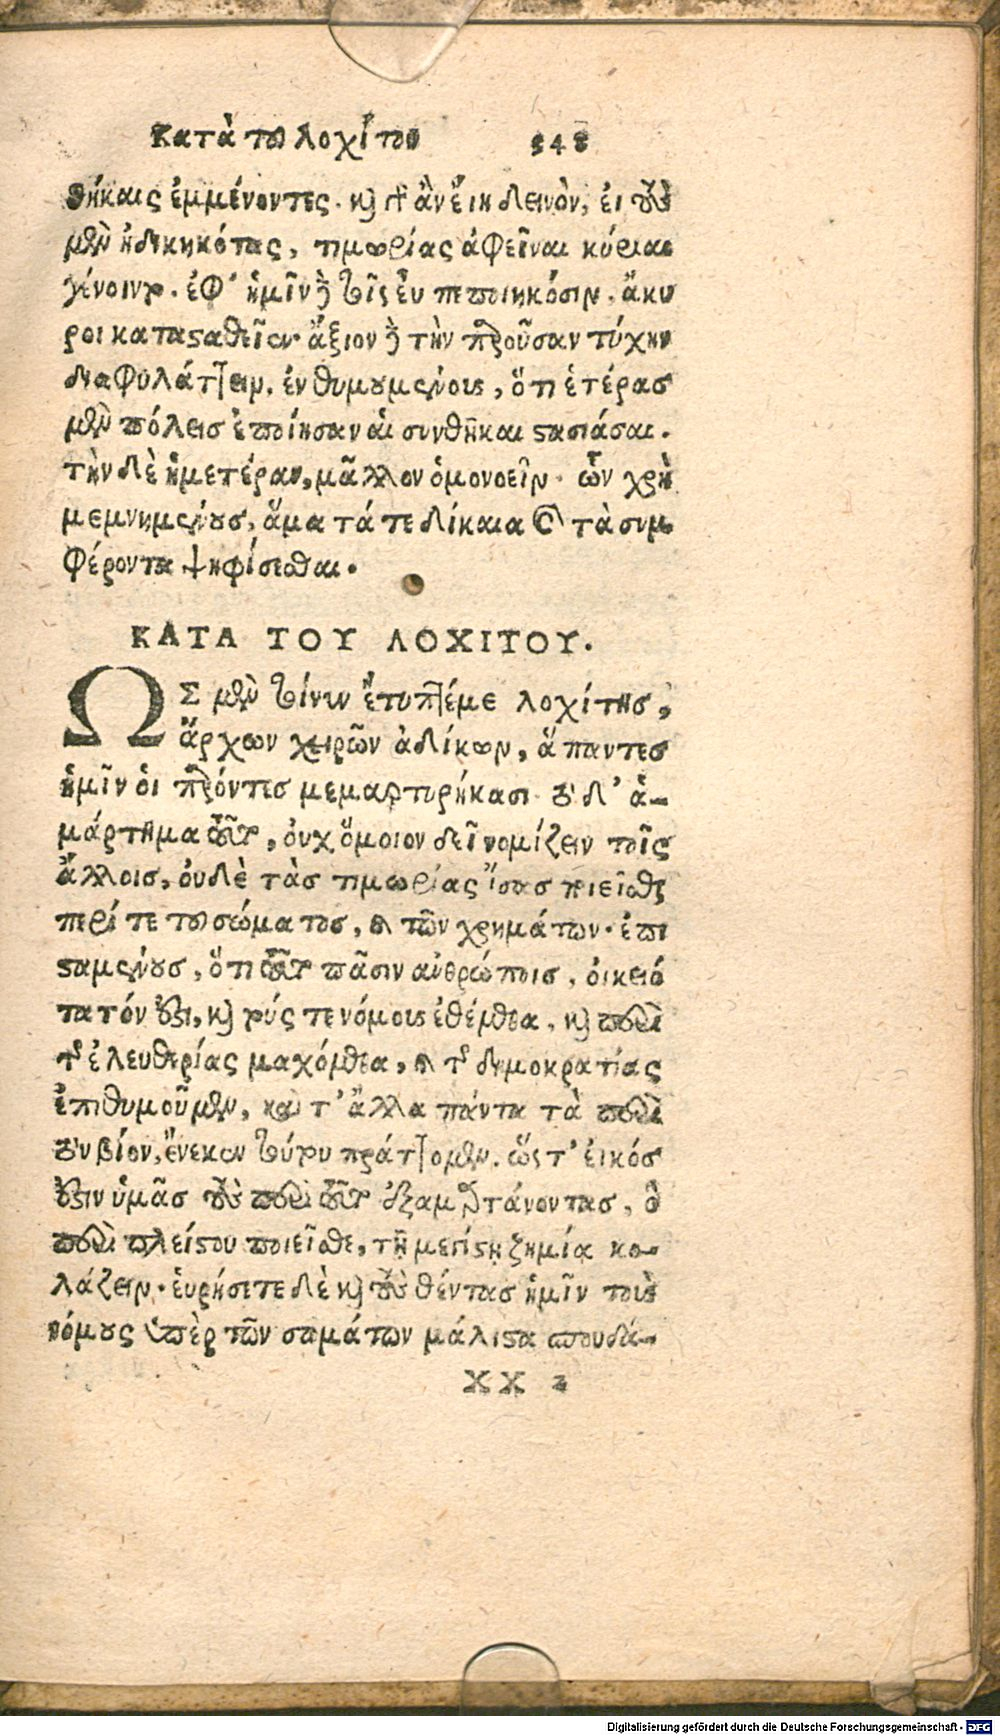 Κατὰ τοῦ λοχίτου 348
θήκαις ἐμμένοντες. καὶ γὰρ ἂν εἴη δεινὸν, εἰ τοὺς
μὲν ἠδικηκότας, τιμωρίας ἀφεῖναι κύριοι
γένοιντο. ἐφ' ἡμῖν δὲ τοῖς εὖ πεποιηκόσιν, ἄκυ
ροι κατασταθεῖεν. ἄξιον δὲ τὴν παροῦσαν τύχην
διαφυλάττειν, ἐνθυμουμένοις, ὅτι ἑτέρας
μὲν πόλεις ἐποίησαν αἱ συνθῆκαι στασιάσαι.
τὴν δὲ ἡμετέραν, μᾶλλον ὁμονοεῖν. ὧν χρὴ
μεμνημένους, ἅμα τά τε δίκαια καὶ τὰ συμ
φέροντα ψηφίσεσθαι.
ΚΑΤΑ ΤΟΥ ΛΟΧΙΤΟΥ.
ΩΣ μὲν τοίνυν ἔτυπτέ με λοχίτης,
ἄρχων χειρῶν ἀδίκων, ἅπαντες
ἡμῖν οἱ παρόντες μεμαρτυρήκασι. τὸ δ' ἁ-
μάρτημα τοῦτο, οὐχ ὅμοιον δεῖ νομίζειν τοῖς
ἄλλοις, οὐδὲ τὰς τιμωρίας ἴσας ποιεῖσθαι
περί τε τοῦ σώματος, καὶ τῶν χρημάτων. ἐπι
σταμένους, ὅτι τοῦτο πᾶσιν ἀνθρώποις, οἰκειό
τατόν ἐστι, καὶ τούς τε νόμους ἐθέμεθα, καὶ περὶ
τῆς ἐλευθερίας μαχόμεθα, καὶ τῆς δημοκρατίας
ἐπιθυμοῦμεν, καὶ τ' ἄλλα πάντα τὰ περὶ
τὸν βίον, ἕνεκεν τούτου πράττομεν. ὥστ' εἰκός
ἐστιν ὑμᾶς τοὺς περὶ τοῦτο ἐξαμαρτάνοντας, ὃ
περὶ πλείστου ποιεῖσθε, τῇ μεγίστῃ ζημίᾳ κο-
λάζειν. εὑρήσετε δὲ καὶ τοὺς θέντας ἡμῖν τοὺς
νόμους ὑπὲρ τῶν σωμάτων μάλιστα σπουδά-
XX 2
Digitalisierung gefördert durch die Deutsche Forschungsgemeinschaft - DFG